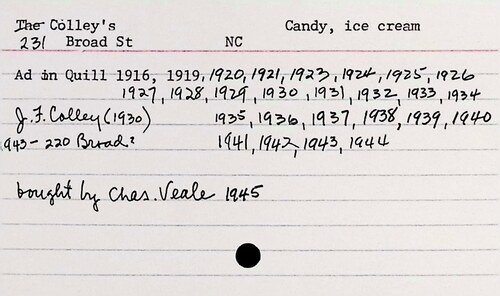 The Colley's Candy, ice cream
231 Broad St NC
Ad in Quill 1916, 1919, 1920, 1921, 1923, 1924, 1925, 1926
1927, 1928, 1929, 1930, 1931, 1932, 1933, 1934
J. F. Colley (1930) 1935, 1936, 1937, 1938, 1939, 1940
943 - 220 Broad? 1941, 1942, 1943, 1944
bought by Chas. Veale 1945